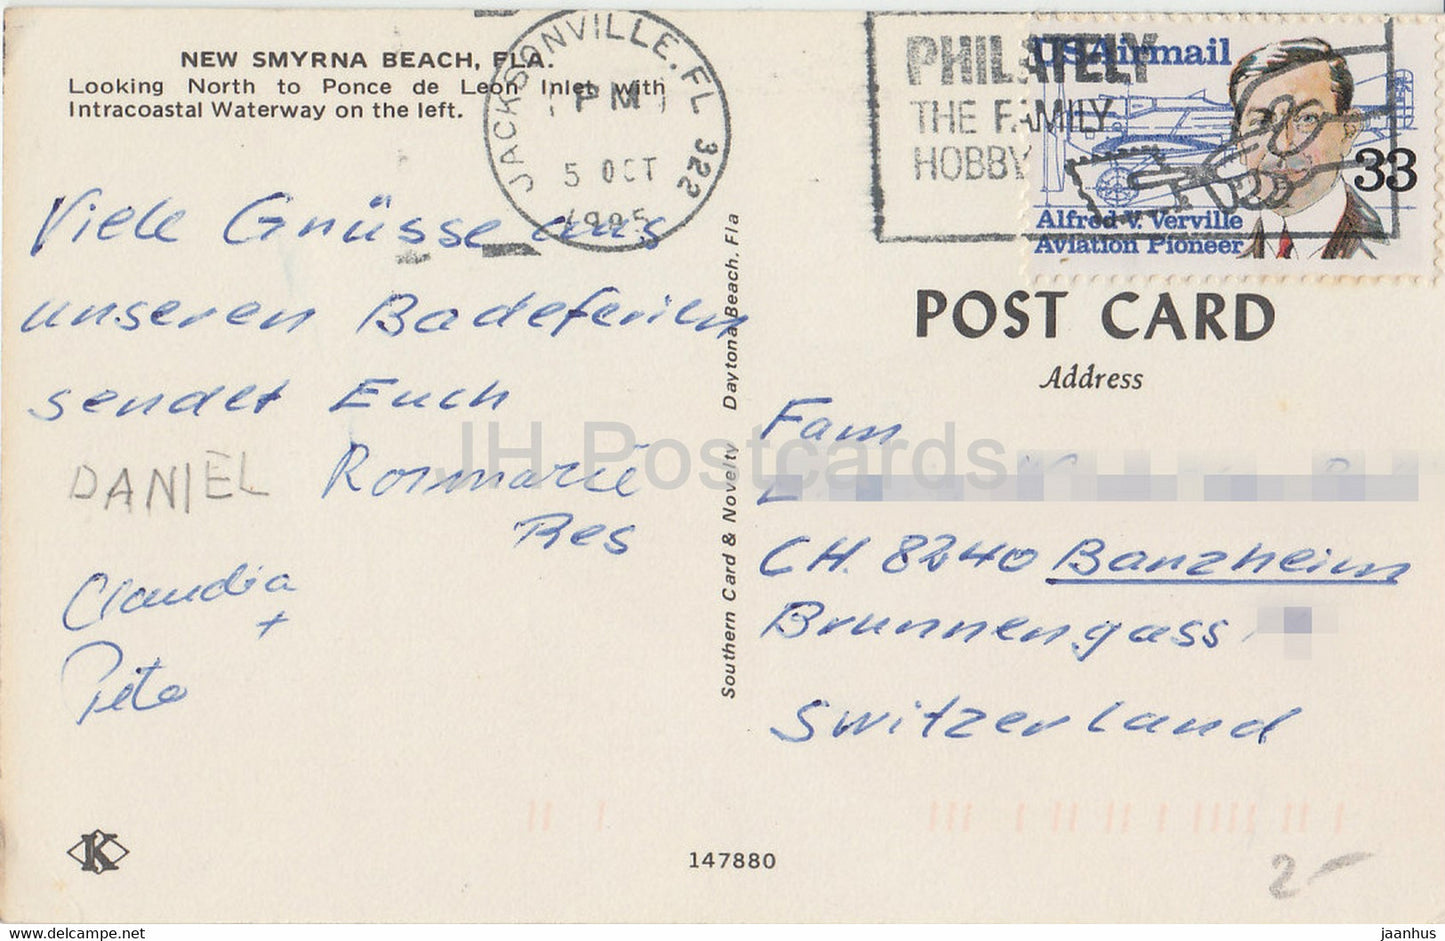 NEW SMYRNA BEACH, FLA.
Looking North to Ponce de Leon Inlet with
Intracoastal Waterway on the left.
JACKSONVILLE, FL 322
PM
5 OCT
1985
PHILATELY
THE FAMILY
HOBBY
USAirmail
33
Alfred V. Verville
Aviation Pioneer
Viele Grüsse aus
unseren Badeferien
sendet Euch
DANIEL Rosmarie
Res
Claudia
+
Peto
Southern Card & Novelty Daytona Beach, Fla
POST CARD
Address
Fam
CH. 8240 Banzheim
Brunnengass
Switzerland
K
147880
2-
JH Postcards
jaanhus.eu
jaanhus